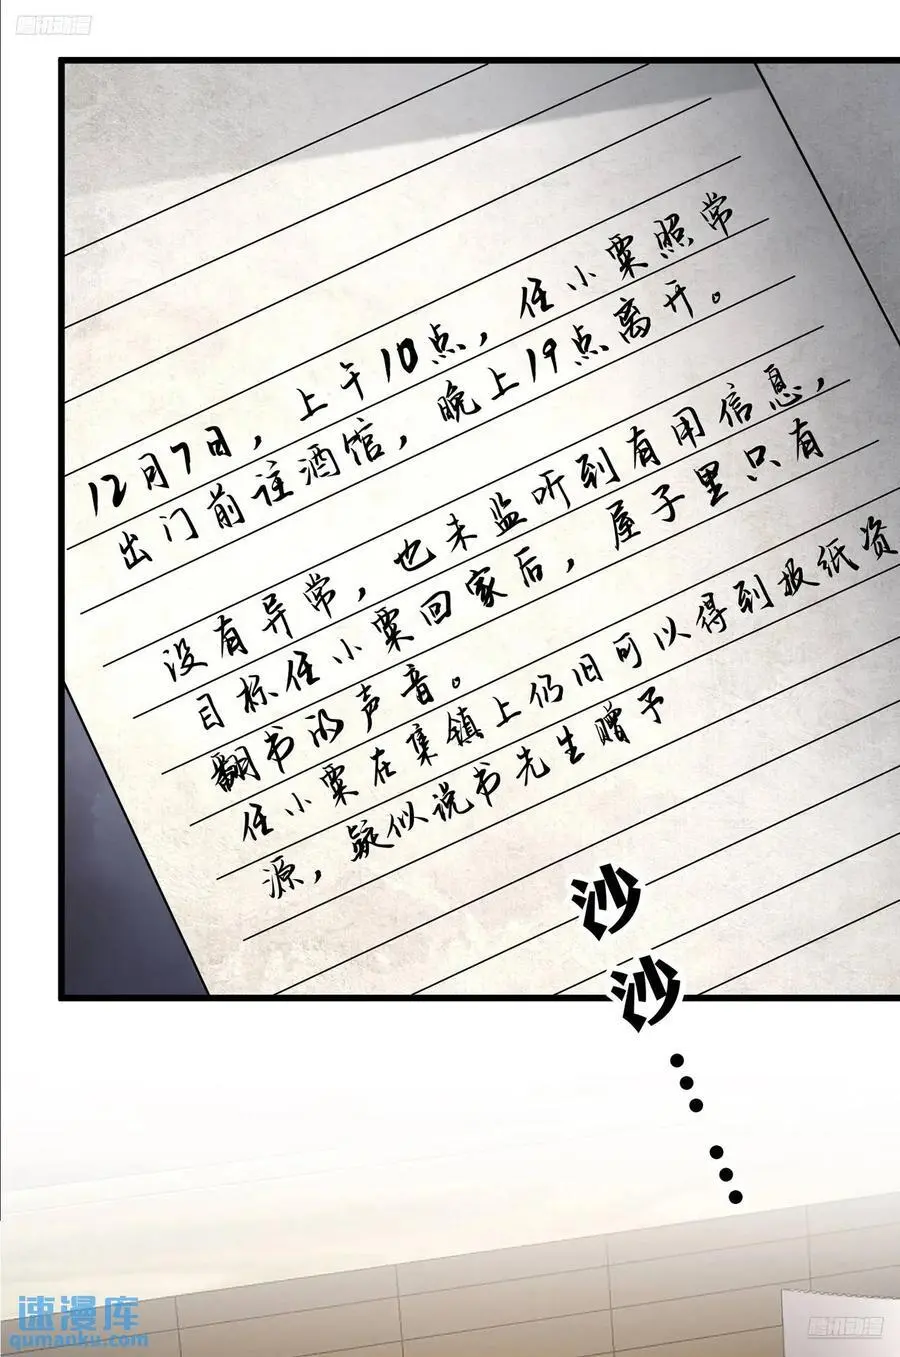 腾讯动漫
12月7日，上午10点，任小粟照常
出门前往酒馆，晚上19点离开。
没有异常，也未监听到有用信息，
目标任小粟回家后，屋子里只有
翻书的声音。
任小粟在集镇上仍旧可以得到报纸资
源，疑似说书先生赠予
沙
沙
……
速漫库
qumanku.com
腾讯动漫